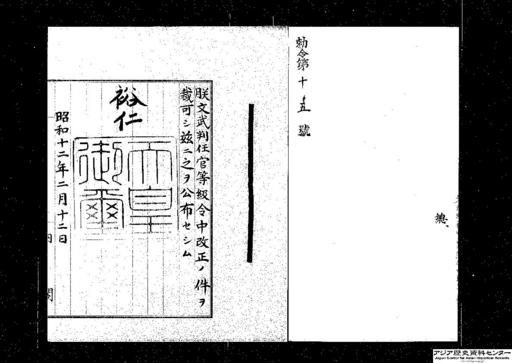 勅令第十五號
朕文武判任官等級令中改正ノ件ヲ
裁可シ茲ニ之ヲ公布セシム
裕仁
天皇御璽
昭和十二年二月十二日
アジア歴史資料センター
Japan Center for Asian Historical Records